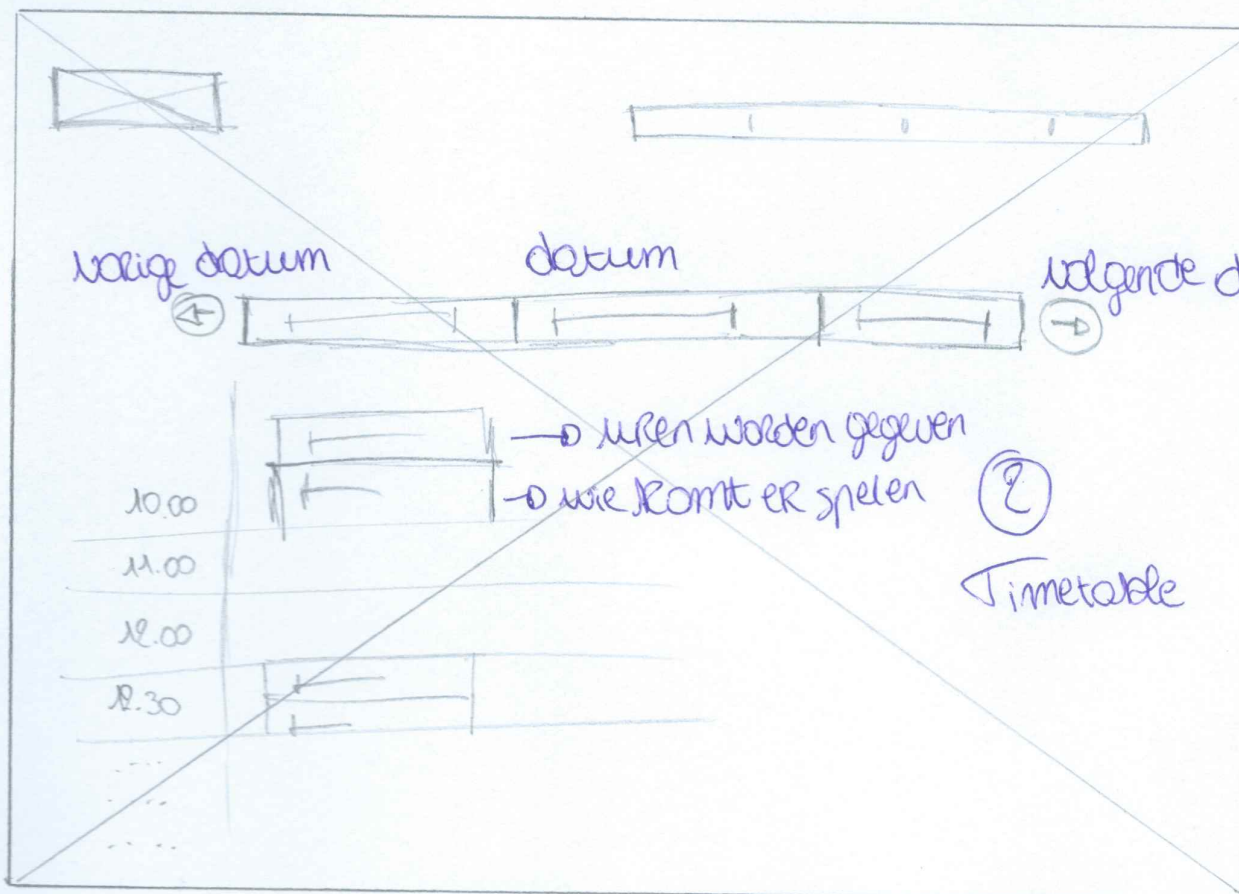 vorige datum
datum
volgende d
uren worden gegeven
10.00
wie komt er spelen
2
11.00
Timetable
12.00
12.30